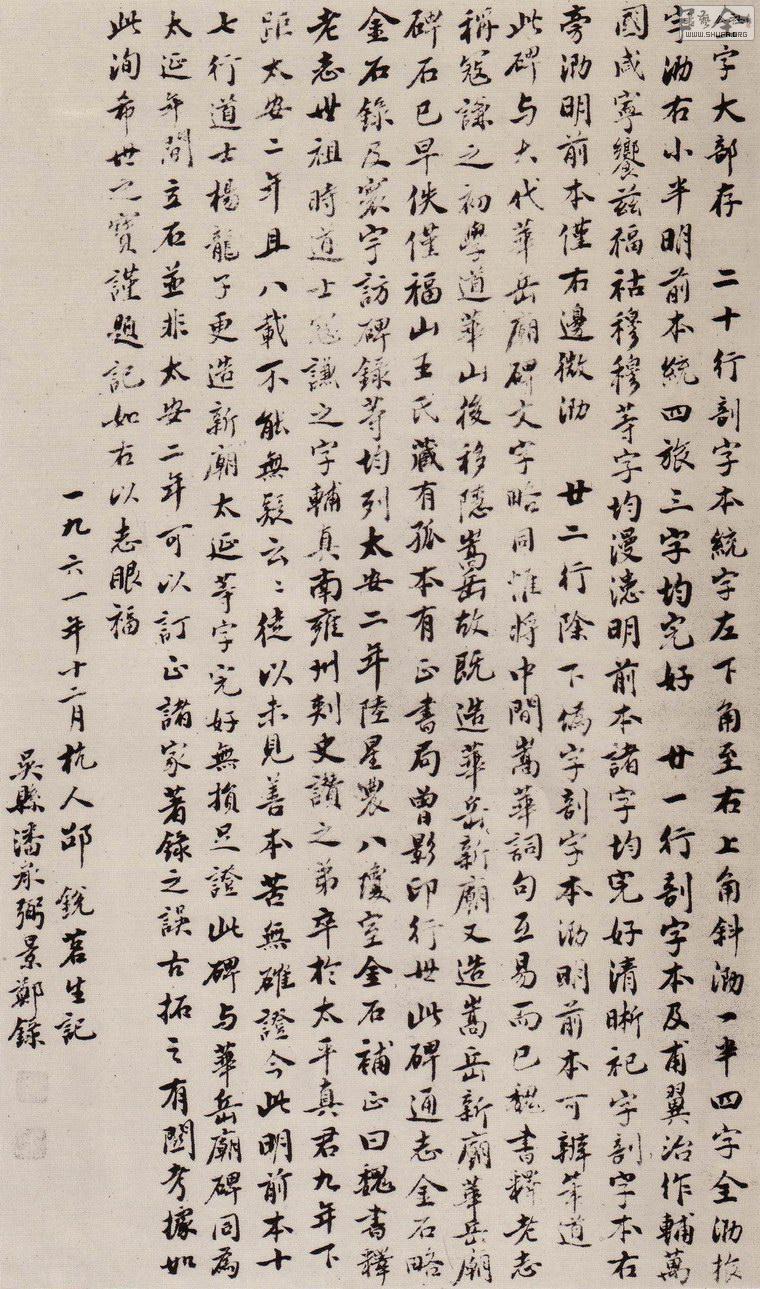 全字大部存　二十行剖字本統字左下角至右上角斜泐一半四字全泐旅
字泐右小半明前本統四旅三字均完好　廿一行剖字本及甫翼治作輔萬
國咸寧饗茲福祜穆穆等字均漫漶明前本諸字均完好清晰祀字剖字本右
旁泐明前本僅右邊微泐　廿二行除下偽字剖字本泐明前本可辨筆道
此碑与大代華岳廟碑文字略同惟將中間嵩華詞句互易而已魏書釋老志
稱寇謙之初學道華山後移隱嵩岳故既造華岳新廟又造嵩岳新廟華岳廟
碑石已早佚僅福山王氏藏有孤本有正書局曾影印行世此碑通志金石略
金石錄及寰宇訪碑錄等均列太安二年陸星農八瓊室金石補正曰魏書釋
老志世祖時道士寇謙之字輔真南雍州刺史讚之弟卒於太平真君九年下
距太安二年且八載不能無疑云〻徒以未見善本苦無確證今此明前本十
七行道士楊龍子更造新廟太延等字完好無損足證此碑与華岳廟碑同為
太延年間立石並非太安二年可以訂正諸家著錄之誤古拓之有關考據如
此洵希世之寶謹題記如右以志眼福
一九六一年十二月杭人邵銳茗生記
吳縣潘承弼景鄭錄
WWW.SHUFA.ORG